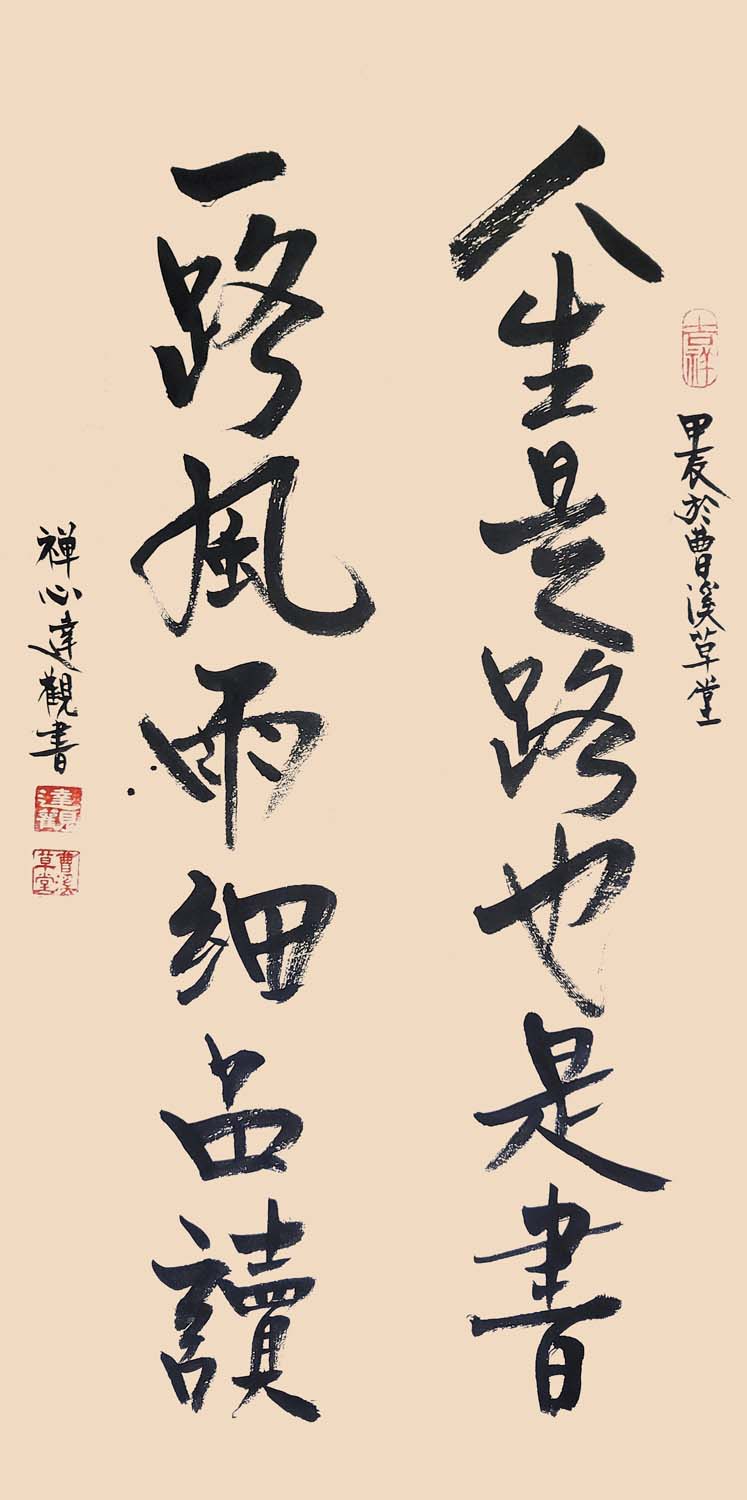 吉祥
甲辰於曹溪草堂
人生是路也是書
一路風雨細品讀
禪心達觀書
達觀
曹溪草堂